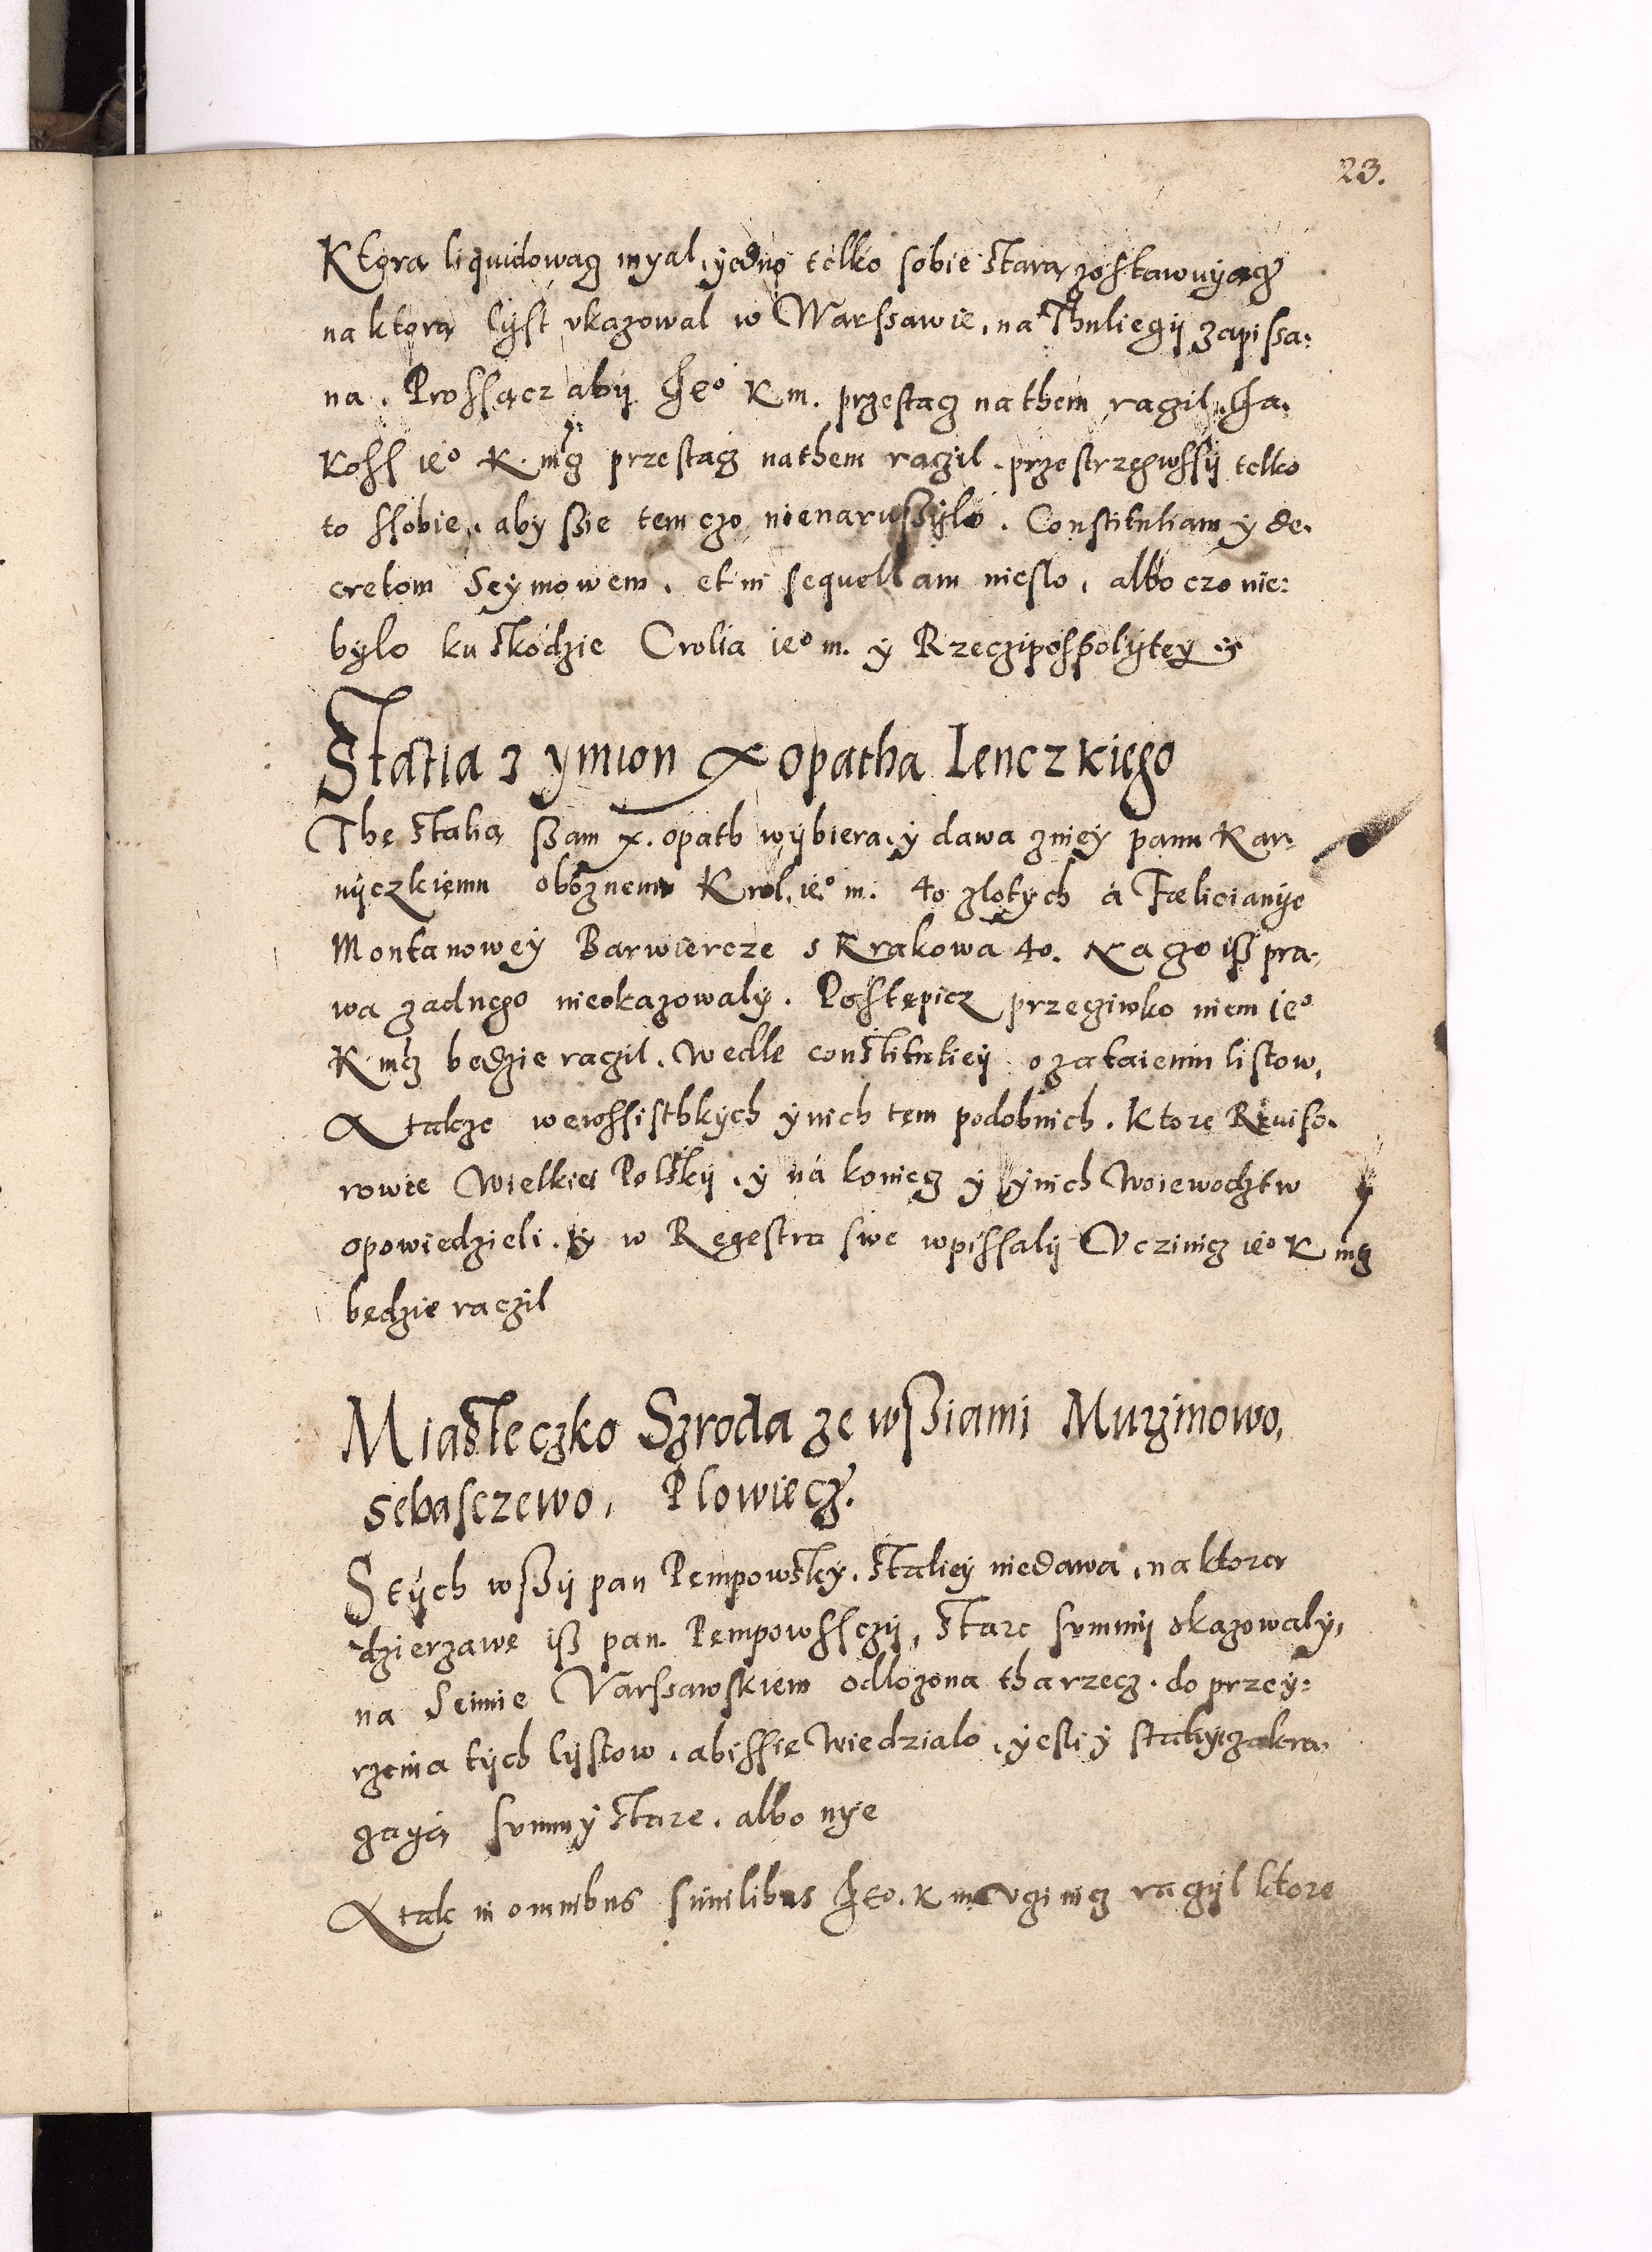 23.
Ktora liquidowacz myal, yedno telko sobie stara zostawuyącz
na ktorą lyst ukazowal w Warssawie, na Thuliegij zapissa:
na. Prossącz abij Jeº K m. przestacz nathem raczil. Ja.
koss ieº K. mcz przestacz nathem raczil. przestrzegwssij telko
to ssobie, aby ssie tem czo nienarussylo. Constitutiam y de.
cretom Seymowem, et in sequellam nieslo, albo czo nie:
bylo ku skodzie Crolia ieº m. y Rzeczipospolytey
Statia z ymion X opatha Lenczkięgo
The statią ssam X. opath wybiera, y dawa zniey panu Kar-
nyczkięmu oboznemu Krol. ieº m. 40 zlotych á Fælicianye
Montanowey Barwiercze s Krakowa 40. Na czo iss pra-
wa zadnego nieokazowaly. Postępicz przeciwko niem ieº
K. mcz będzie raczil. Wedle constitutiey o zataieniu listow,
A takze wewssistbkych ynich tem podobnich. Ktore Reuiso.
rowie Wielkiei Polskij, y ná koniecz y ynich Woiewodztw
opowiedzieli. y w Regestra swe wpissalij Uczinicz ieº K mcz
będzie raczil
Miasteczko Szroda ze wssiami Murzinowo,
Sebasczewo, Plowiecz.
S tych wssij pan Pempowsky. statiey niedawa, na ktorą
dzierzawe iss pan. Pempowssczij, stare summij okazowaly,
na Seimie Varssawskiem odlozona tha rzecz. do przey:
rzenia tych lystow. abissie wiedzialo, yesli y statiye zakra-
gayą summy stare. albo nye
A tak in omnibus similibus Jeº. K m uczinicz raczyl ktore